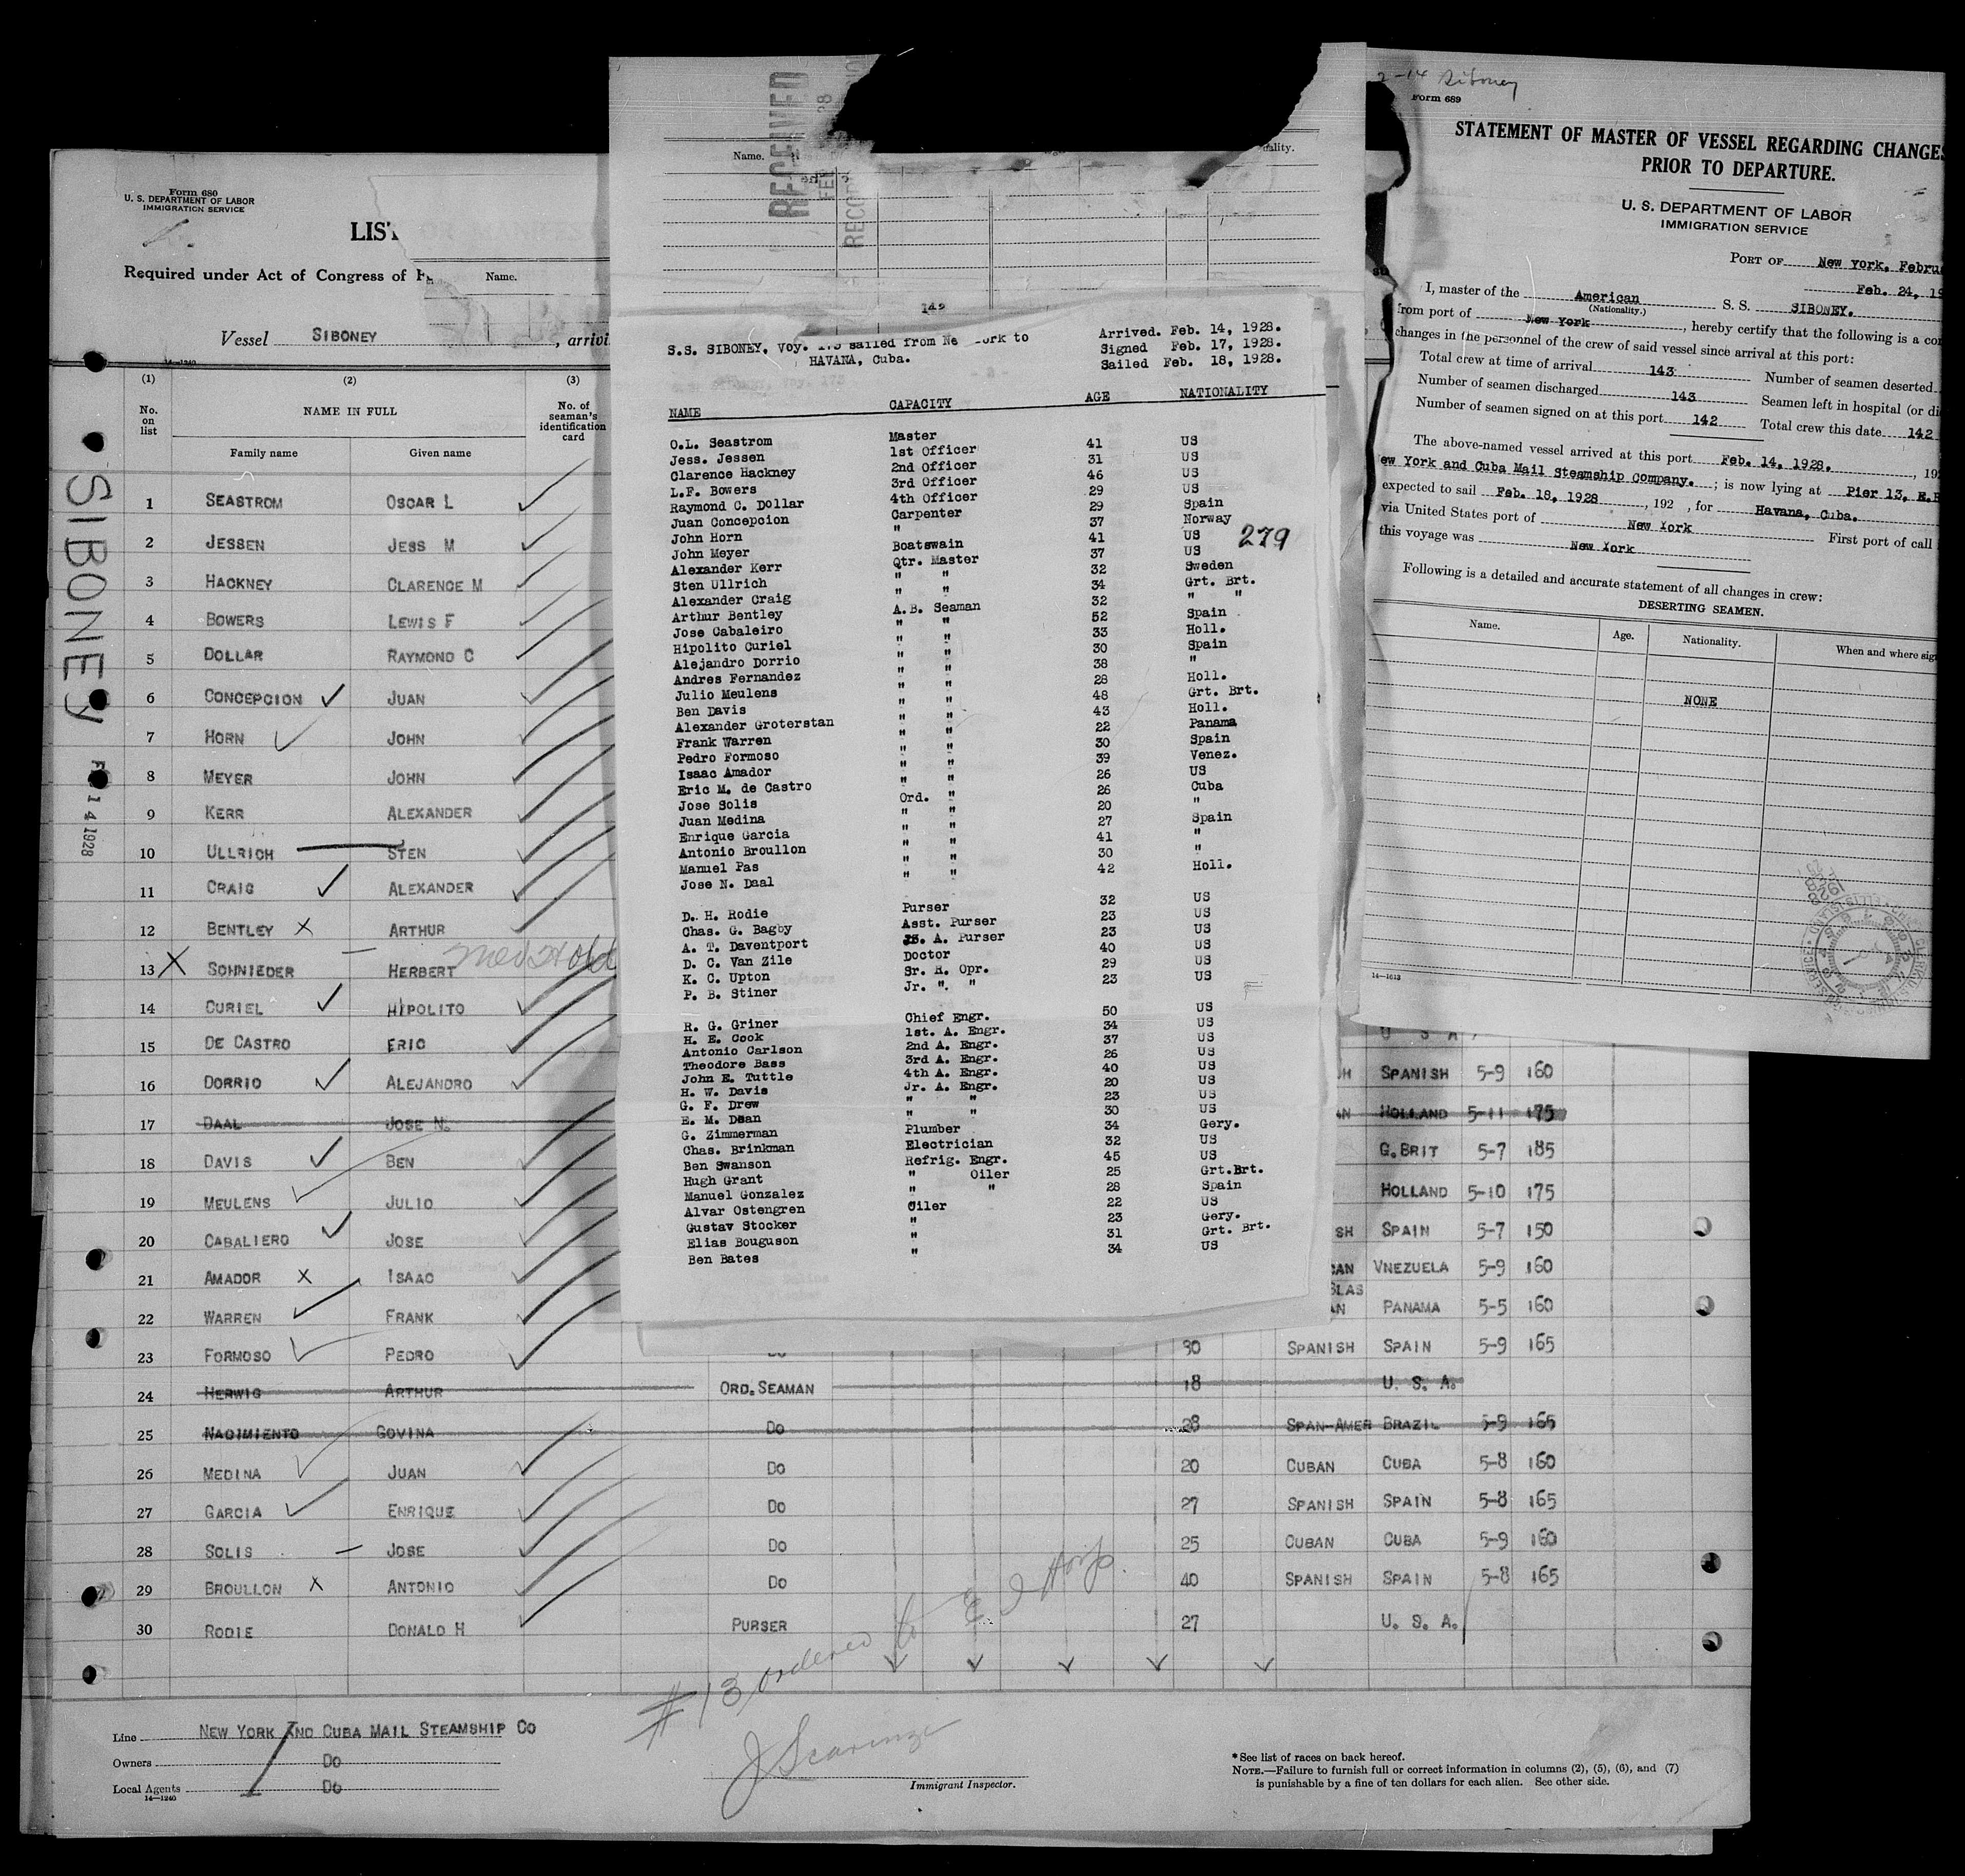 Form 680
U. S. DEPARTMENT OF LABOR
IMMIGRATION SERVICE
LIST
Required under Act of Congress of
Vessel SIBONEY , arrivi
14—1240
(1) (2) (3)
No. on list
NAME IN FULL
No. of seaman's identification card
Family name Given name
SIBONEY
14 1928
1 SEASTROM OSCAR L
2 JESSEN JESS M
3 HACKNEY CLARENCE M
4 BOWERS LEWIS F
5 DOLLAR RAYMOND C
6 CONCEPCION JUAN
7 HORN JOHN
8 MEYER JOHN
9 KERR ALEXANDER
10 ULLRICH STEN
11 CRAIG ALEXANDER
12 BENTLEY X ARTHUR
13 X SCHNIEDER HERBERT Med Hold
14 CURIEL HIPOLITO
15 DE CASTRO ERIC
16 DORRIO ALEJANDRO SPANISH 5-9 160
17 DAAL JOSE N. HOLLAND 5-11 175
18 DAVIS BEN G.BRIT 5-7 185
19 MEULENS JULIO HOLLAND 5-10 175
20 CABALIERO JOSE SH SPAIN 5-7 150
21 AMADOR X ISAAC CAN VNEZUELA 5-9 160
22 WARREN FRANK PANAMA 5-5 160
23 FORMOSO PEDRO DO 30 SPANISH SPAIN 5-9 165
24 HERWIG ARTHUR ORD.SEAMAN 18 U. S. A.
25 NACIMIENTO GOVINA DO 28 SPAN-AMER BRAZIL 5-9 165
26 MEDINA JUAN DO 20 CUBAN CUBA 5-8 160
27 GARCIA ENRIQUE DO 27 SPANISH SPAIN 5-8 165
28 SOLIS JOSE DO 25 CUBAN CUBA 5-9 160
29 BROULLON X ANTONIO DO 40 SPANISH SPAIN 5-8 165
30 RODIE DONALD H PURSER 27 U. S. A.
#13 ordered to
Line NEW YORK AND CUBA MAIL STEAMSHIP CO
Owners DO
Local Agents DO
14—1240
Immigrant Inspector.
*See list of races on back hereof.
NOTE.—Failure to furnish full or correct information in columns (2), (5), (6), and (7)
is punishable by a fine of ten dollars for each alien. See other side.
Name.
RECEIVED
Name.
S.S. SIBONEY, Voy. 173 sailed from New York to
HAVANA, Cuba.
Arrived. Feb. 14, 1928.
Signed Feb. 17, 1928.
Sailed Feb. 18, 1928.
NAME CAPACITY AGE NATIONALITY
O.L. Seastrom Master 41 US
Jess. Jessen 1st Officer 31 US
Clarence Hackney 2nd Officer 46 US
L.F. Bowers 3rd Officer 29 US
Raymond C. Dollar 4th Officer 29 Spain
Juan Concepcion Carpenter 37 Norway
John Horn " 41 US
John Meyer Boatswain 37 US
Alexander Kerr Qtr. Master 32 Sweden
Sten Ullrich " " 34 Grt. Brt.
Alexander Craig " " 32 " "
Arthur Bentley A.B. Seaman 52 Spain
Jose Cabaleiro " " 33 Holl.
Hipolito Curiel " " 30 Spain
Alejandro Dorrio " " 38 "
Andres Fernandez " " 28 Holl.
Julio Meulens " " 48 Grt. Brt.
Ben Davis " " 43 Holl.
Alexander Groterstan " " 22 Panama
Frank Warren " " 30 Spain
Pedro Formoso " " 39 Venez.
Isaac Amador " " 26 US
Eric M. de Castro " " 26 Cuba
Jose Solis Ord. " 20 "
Juan Medina " " 27 Spain
Enrique Garcia " " 41 "
Antonio Broullon " " 30 "
Manuel Pas " " 42 Holl.
Jose N. Daal " "
D. H. Rodie Purser 32 US
Chas. G. Bagby Asst. Purser 23 US
A. T. Daventport A. Purser 23 US
D. C. Van Zile Doctor 40 US
K. C. Upton Sr. R. Opr. 29 US
P. B. Stiner Jr. ". " 23 US
R. G. Griner Chief Engr. 50 US
H. E. Cook 1st. A. Engr. 34 US
Antonio Carlson 2nd A. Engr. 37 US
Theodore Bass 3rd A. Engr. 26 US
John E. Tuttle 4th A. Engr. 40 US
H. W. Davis Jr. A. Engr. 20 US
G. F. Drew " " 23 US
E. M. Dean " " 30 US
G. Zimmerman Plumber 34 Gery.
Chas. Brinkman Electrician 32 US
Ben Swanson Refrig. Engr. 45 US
Hugh Grant " Oiler 25 Grt.Brt.
Manuel Gonzalez " " 28 Spain
Alvar Ostengren Oiler 22 US
Gustav Stocker " 23 Gery.
Elias Bouguson " 31 Grt. Brt.
Ben Bates " 34 US
279
2-14 Siboney
Form 689
STATEMENT OF MASTER OF VESSEL REGARDING CHANGES
PRIOR TO DEPARTURE.
U. S. DEPARTMENT OF LABOR
IMMIGRATION SERVICE
PORT OF New york, Febru
Feb. 24, 19
I, master of the American S. S. SIBONEY.
(Nationality.)
from port of New York , hereby certify that the following is a
changes in the personnel of the crew of said vessel since arrival at this port:
Total crew at time of arrival 143 Number of seamen deserted
Number of seamen discharged 143 Seamen left in hospital (or
Number of seamen signed on at this port 142 Total crew this date 142
The above-named vessel arrived at this port Feb. 14, 1928. , 192
ew York and Cuba Mail Steamship Company. ; is now lying at Pier 13, E.R
expected to sail Feb. 18, 1928 , 192 , for Havana, Cuba.
via United States port of New York First port of call
this voyage was New York
Following is a detailed and accurate statement of all changes in crew:
DESERTING SEAMEN.
Name. Age. Nationality. When and where
NONE
14—1613